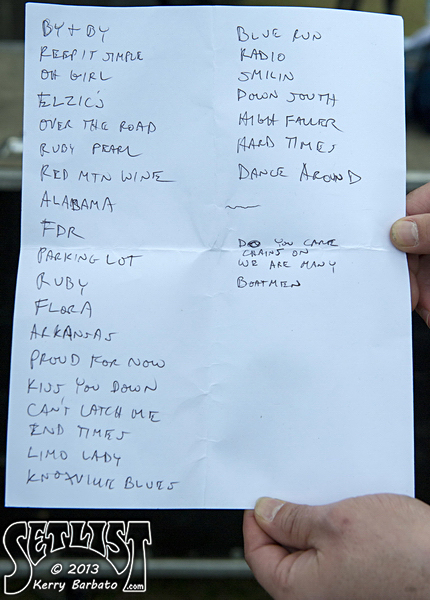 BY + BY
KEEP IT SIMPLE
OH GIRL
ELZIC'S
OVER THE ROAD
RUBY PEARL
RED MTN WINE
ALABAMA
FDR
PARKING LOT
RUBY
FLORA
ARKANSAS
PROUD FOR NOW
KISS YOU DOWN
CAN'T CATCH ME
END TIMES
LIMO LADY
KNOXVILLE BLUES
BLUE RUN
RADIO
SMILIN
DOWN SOUTH
HIGH FALLER
HARD TIMES
DANCE AROUND
DO YOU CARE
CHAINS ON
WE ARE MANY
BOATMEN
SETLIST
.com
© 2013
Kerry Barbato